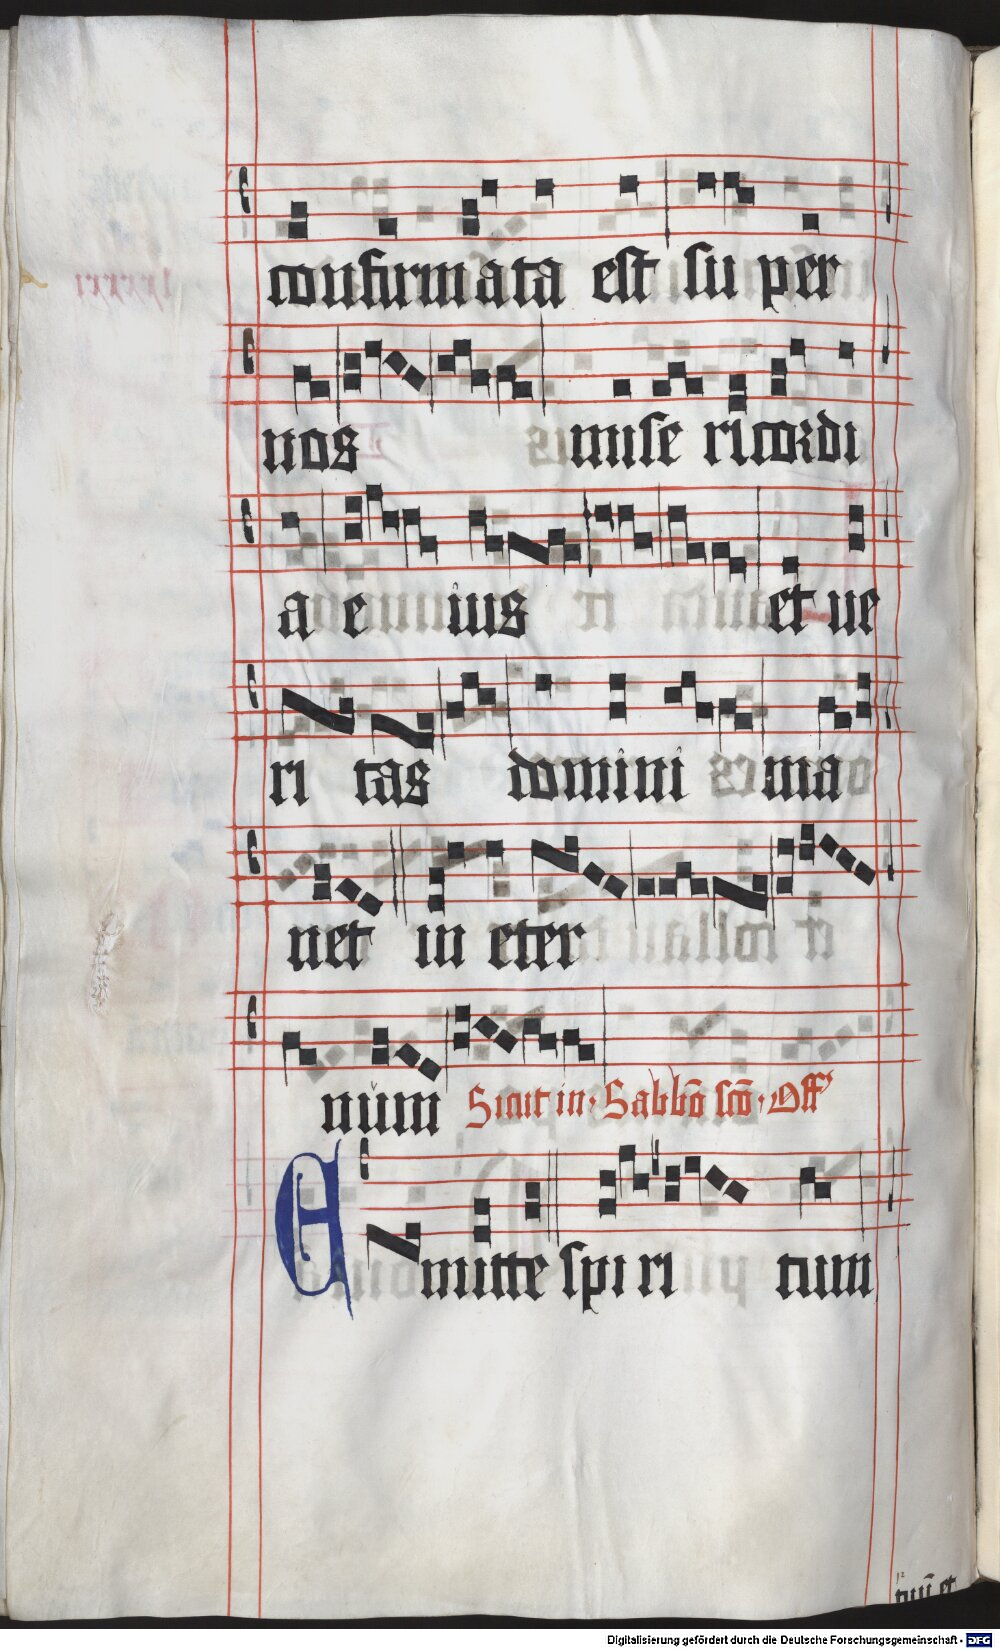 confirmata est su per
nos mise ricordi
a e ius et ue
ri tas domini ma
net in eter
num Sicut in · Sabbō scō · Off
Emitte spi ri tum
Digitalisierung gefördert durch die Deutsche Forschungsgemeinschaft - DFG